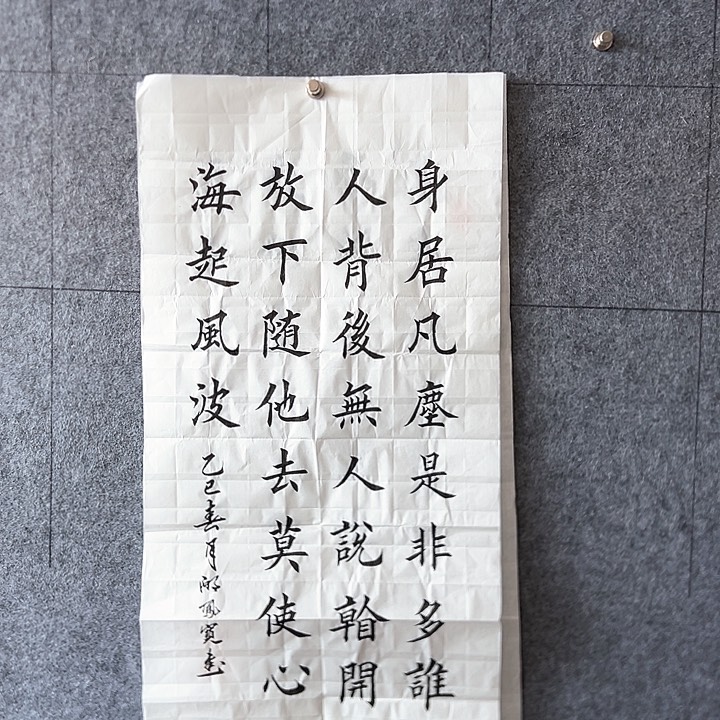 身居凡塵是非多誰
人背後無人說開
放下随他去莫使心
海起風波
乙巳春月